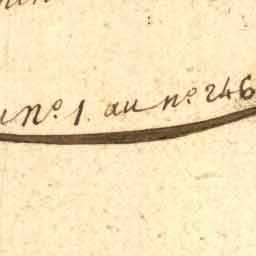 nº. 1. au nº. 246